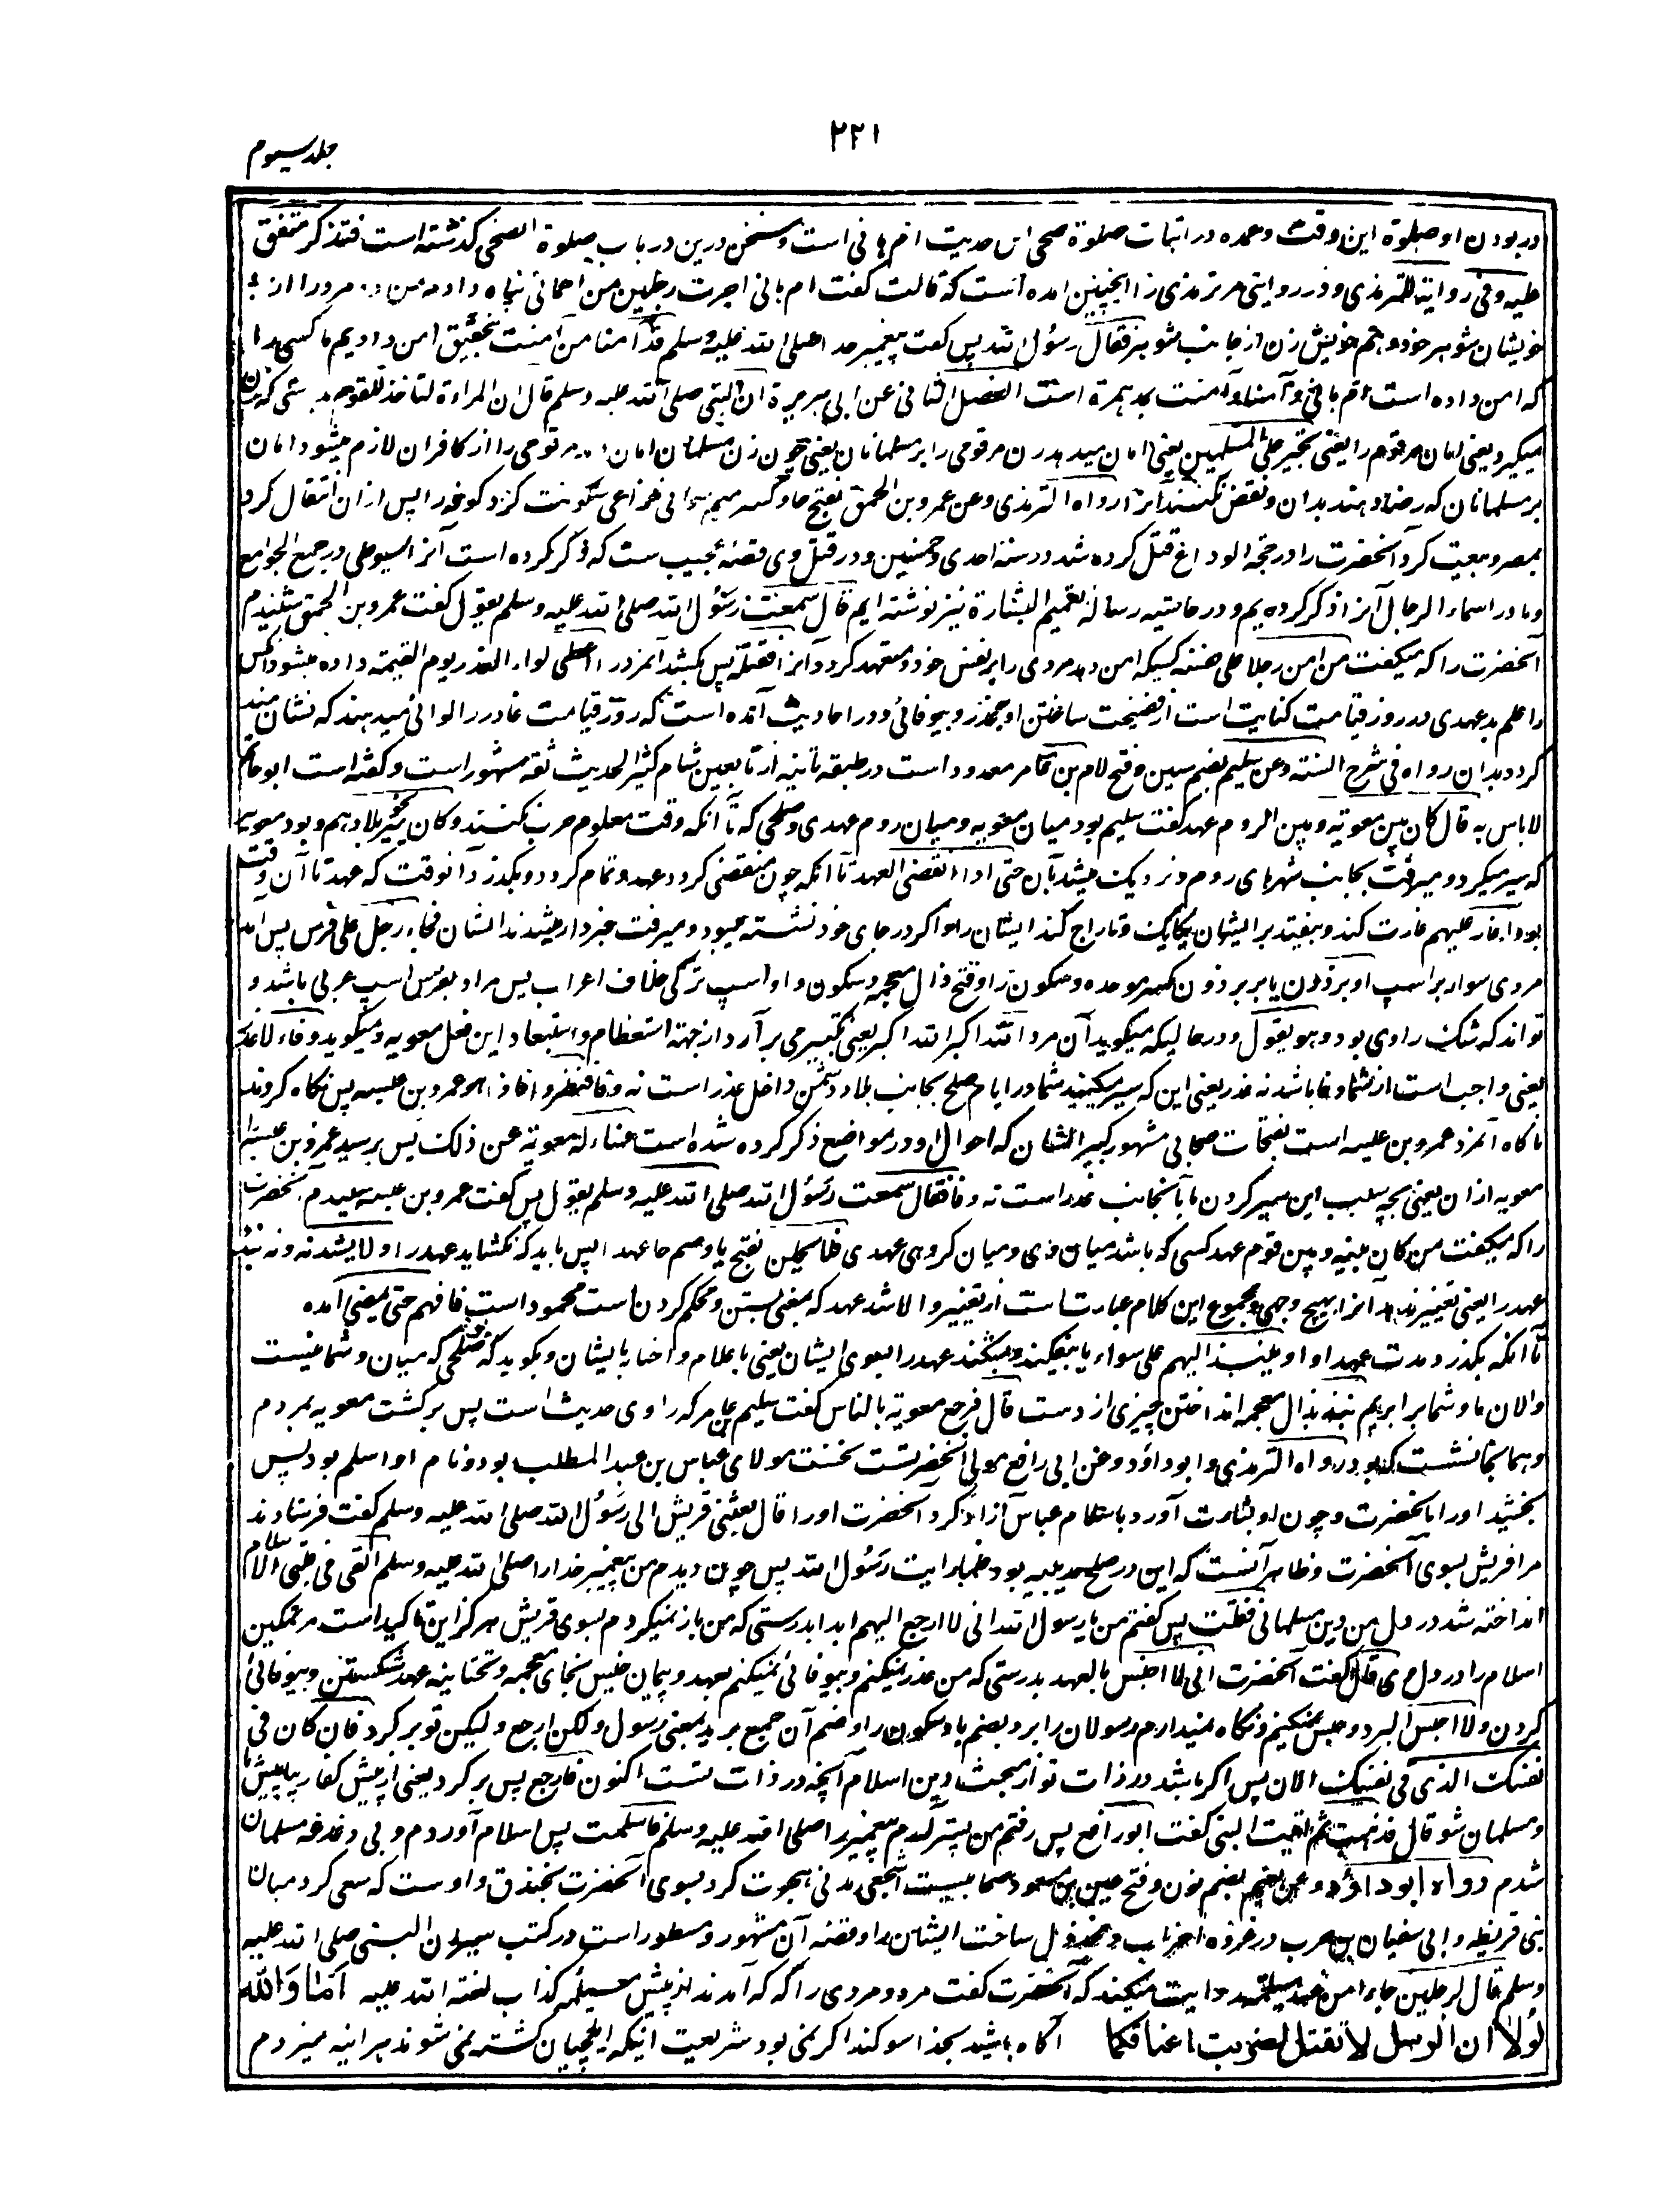 ۲۲۱
جلد سیوم
در بودن او صلوة این وقت و عمده در اثبات صلوة ضحی این حدیث ام هانی است و سخن درین در باب صلوة الضحی گذشته است فتذکر متفق
علیه وفی روایة للترمذی و در روایتی مر ترمذی را اینچنین آمده است که قالت گفت ام هانی اجرت رجلین من احمائی پناه دادم من دو مرد را از
خویشان شوهر خود و هم خویش زن از جانب شوهر فقال رسول الله پس گفت پیغمبر خدا صلی الله علیه وسلم قد آمنا من آمنت بتحقیق امن دادیم ما کسی را
که امن داده است ام هانی و آمنا و آمنت بمد همزه است الفصل الثانی عن ابی هریرة ان النبی صلی الله علیه وسلم قال ان المراءة لتاخذ للقوم بدرستی که زن
میگیرد یعنی امان مر قوم را یعنی تجیر علی المسلمین یعنی امان میدهد زن مر قومی را بر مسلمانان یعنی چون زن مسلمان امان دهد مر قومی را از کافران لازم میشود امان
بر مسلمانان که رضا دهند بدان و نقض نکنند آنرا رواه الترمذی وعن عمرو بن الحمق بفتح حا و کسر میم خزاعی سکونت کرد کوفه را پس ازان انتقال کرد
بمصر و بیعت کرد آنحضرت را در حجة الوداع قتل کرده شد در سنه احدی وخمسین و در قتل وی قصهٔ عجیب ست که ذکر کرده است آنرا سیوطی در جمع الجوامع
و ما در اسماء الرجال آنرا ذکر کرده یم و در حاشیه رساله تعمیم البشارة نیز نوشته ایم قال سمعت رسول الله صلی الله علیه وسلم یقول گفت عمرو بن الحمق شنیدم
آنحضرت را که میگفت من امن رجلا علی نفسه کسیکه امن دهد مردی را بر نفس خود و متعهد گردد آنرا فقتله پس بکشد آنمرد را اعطی لواء الغدر یوم القیمة داده میشود آنکس
را علم بدعهدی در روز قیامت کنایت است از فضیحت ساختن او بغدر و بیوفائی و در احادیث آمده است که روز قیامت غادر را لوائی میدهند که نشان مند
گردد بدان رواه فی شرح السنة وعن سلیم بضم سین و فتح لام بن عامر معدود است در طبقه ثانیه از تابعین شام کثیر الحدیث ثقه مشهور است و گفته است ابو حاتم
لا باس به قال کان بین معویة وبین الروم عهد گفت سلیم بود میان معویه و میان روم عهدی و صلحی که تا آنکه وقت معلوم حرب نکنند وکان یسیر نحو بلادهم و بود معویه
که سیر میکرد و میرفت بجانب شهرهای روم و نزدیک میشد بآن حتی اذا انقضی العهد تا آنکه چون منقضی گردد عهد و تمام گردد و بگذرد آنوقت که عهد تا آن وقت
بود اغار علیهم غارت کند و بیفتد بر ایشان یکایک و تاراج کند ایشان را و اگر در جای خود نشسته میبود و میرفت خبردار میشدند ایشان فجاء رجل علی فرس پس آمد
مردی سوار بر اسپ او برذون یا بر برذون بکسر موحده و سکون را و فتح ذال معجمه و سکون واو اسپ ترکی خلاف اعراب پس مراد بفرس اسپ عربی باشد و
تواند که شک راوی بود و هو یقول و در حالیکه میگوید آن مرد الله اکبر الله اکبر یعنی تکبیر می برآرد از جهة استعظام و استبعاد این فعل معویه و میگوید وفاء لا غدر
یعنی واجب است از شما وفا باشد نه غدر یعنی این که سیر میکنید شما در ایام صلح بجانب بلاد دشمن داخل غدر است نه وفا فنظروا فاذا هو عمرو بن عبسه پس نگاه کردند
ناگاه آنمرد عمرو بن عبسه است بفتحات صحابی مشهور کبیر الشان که احوال او در مواضع ذکر کرده شده است فساءله معویة عن ذلک پس پرسید عمرو بن عبسه را
معویه ازان یعنی بچه سبب این سیر کردن ما بآنجانب غدر است نه وفا فقال سمعت رسول الله صلی الله علیه وسلم یقول پس گفت عمرو بن عبسه شنیدم آنحضرت
را که میگفت من کان بینه وبین قوم عهد کسی که باشد میان وی و میان گروهی عهدی فلا یحلن بفتح یا و ضم حا عهدا پس باید که نکشاید عهد را ولا یشدنه و نه بندد
عهد را یعنی تغییر ندهد آنرا بهیچ وجهی و مجموع این کلام عبارت است از تغییر والا شد عهد که بمعنی بستن و محکم کردن است محمود است فافهم حتی یمضی امده
تا آنکه بگذرد مدت عهد او او ینبذ الیهم علی سواء یا بیفگند و بشکند عهد را بسوی ایشان یعنی باعلام و اخبار ایشان و بگوید که صلحی که میان و شما نیست
والان ما و شما برابریم نبذ بذال معجمه انداختن چیزی از دست قال فرجع معویة بالناس گفت سلیم بن عامر که راوی حدیث است پس برگشت معویه بمردم
و بهمانجا نشست که بود رواه الترمذی وابو داؤد وعن ابی رافع مولی آنحضرتست نخست مولای عباس بن عبد المطلب بود و نام او اسلم بود پس
بخشید او را بآنحضرت و چون او بشارت آورد باسلام عباس آزاد کرد آنحضرت او را قال بعثنی قریش الی رسول الله صلی الله علیه وسلم گفت فرستادند
مرا قریش بسوی آنحضرت و ظاهر آنست که این در صلح حدیبیه بود فلما رایت رسول الله پس چون دیدم من پیغمبر خدا را صلی الله علیه وسلم القی فی قلبی الاسلام
انداخته شد در دل من دین مسلمانی فقلت پس گفتم من یا رسول الله انی لا ارجع الیهم ابدا بدرستی که من باز نمیگردم بسوی قریش هرگز این تاکید است مر تمکین
اسلام را در دل وی قال گفت آنحضرت انی لا اخیس بالعهد بدرستی که من غدر نمیکنم و بیوفائی نمیکنم بعهد و پیمان خیس بخای معجمه و تحتانیه عهد شکستن و بیوفائی
کردن ولا احبس البرد و حبس نمیکنم و نگاه نمیدارم رسولان را برد بضم با و سکون را و ضم آن جمع برید بمعنی رسول ولکن ارجع ولیکن تو برگرد فان کان فی
نفسک الذی فی نفسک الان پس اگر باشد در ذات تو از محبت دین اسلام آنچه در ذات تست اکنون فارجع پس برگرد یعنی از پیش کفار بیا پیش ما
و مسلمان شو قال فذهبت ثم اتیت النبی گفت ابو رافع پس رفتم من پستر آمدم پیغمبر را صلی الله علیه وسلم فاسلمت پس اسلام آوردم و بی دغدغه مسلمان
شدم رواه ابو داؤد وعن نعیم بضم نون و فتح عین بن مسعود صحابیست اشجعی مدنی هجرت کرد بسوی آنحضرت بخندق و اوست که سعی کرد میان
بنی قریظه و ابی سفیان بن حرب در غزوه احزاب و مخذول ساخت ایشان را و قصه آن مشهور و مسطور است در کتب سیر ان النبی صلی الله علیه
وسلم قال لرجلین جاءا من عند مسیلمة روایت میکند که آنحضرت گفت مر دو مردی را که که آمدند از پیش مسیلمه کذاب لعنة الله علیه اما والله
لولا ان الرسل لا تقتل لضربت اعناقکما آگاه باشید بخدا سوگند اگر نمی بود شریعت اینکه ایلچیان کشته نمی شوند هر آینه میزدم